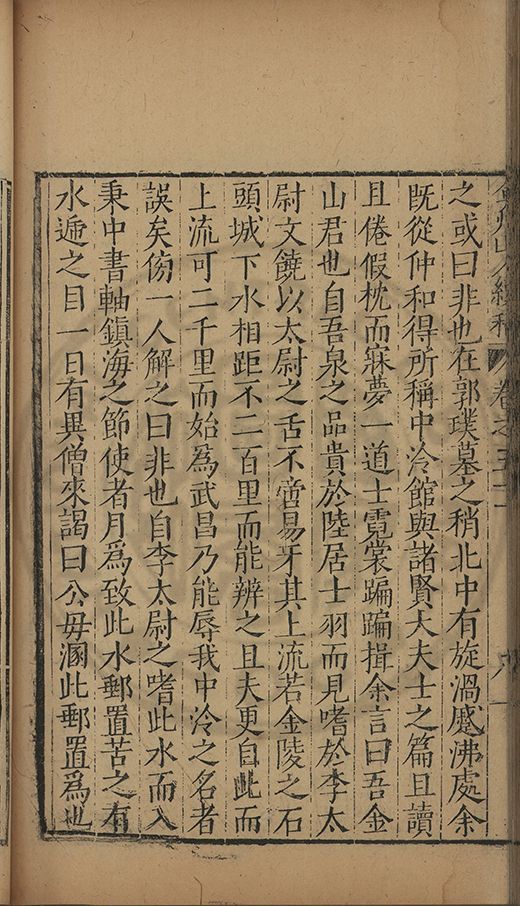 弇州山人續稿 卷之五十一 八
之或曰非也在郭璞墓之稍北中有旋渦蹙沸處余
旣從仲和得所稱中泠館與諸賢大夫士之篇且讀
且倦假枕而寐夢一道士霓裳蹁蹁揖余言曰吾金
山君也自吾泉之品貴於陸居士羽而見嗜於李太
尉文饒以太尉之舌不啻易牙其上流若金陵之石
頭城下水相距不二百里而能辨之且夫更自此而
上流可二千里而始爲武昌乃能辱我中泠之名者
誤矣傍一人解之曰非也自李太尉之嗜此水而入
秉中書軸鎮海之節使者月爲致此水郵置苦之有
水遞之目一日有異僧來謁曰公毋溷此郵置爲也